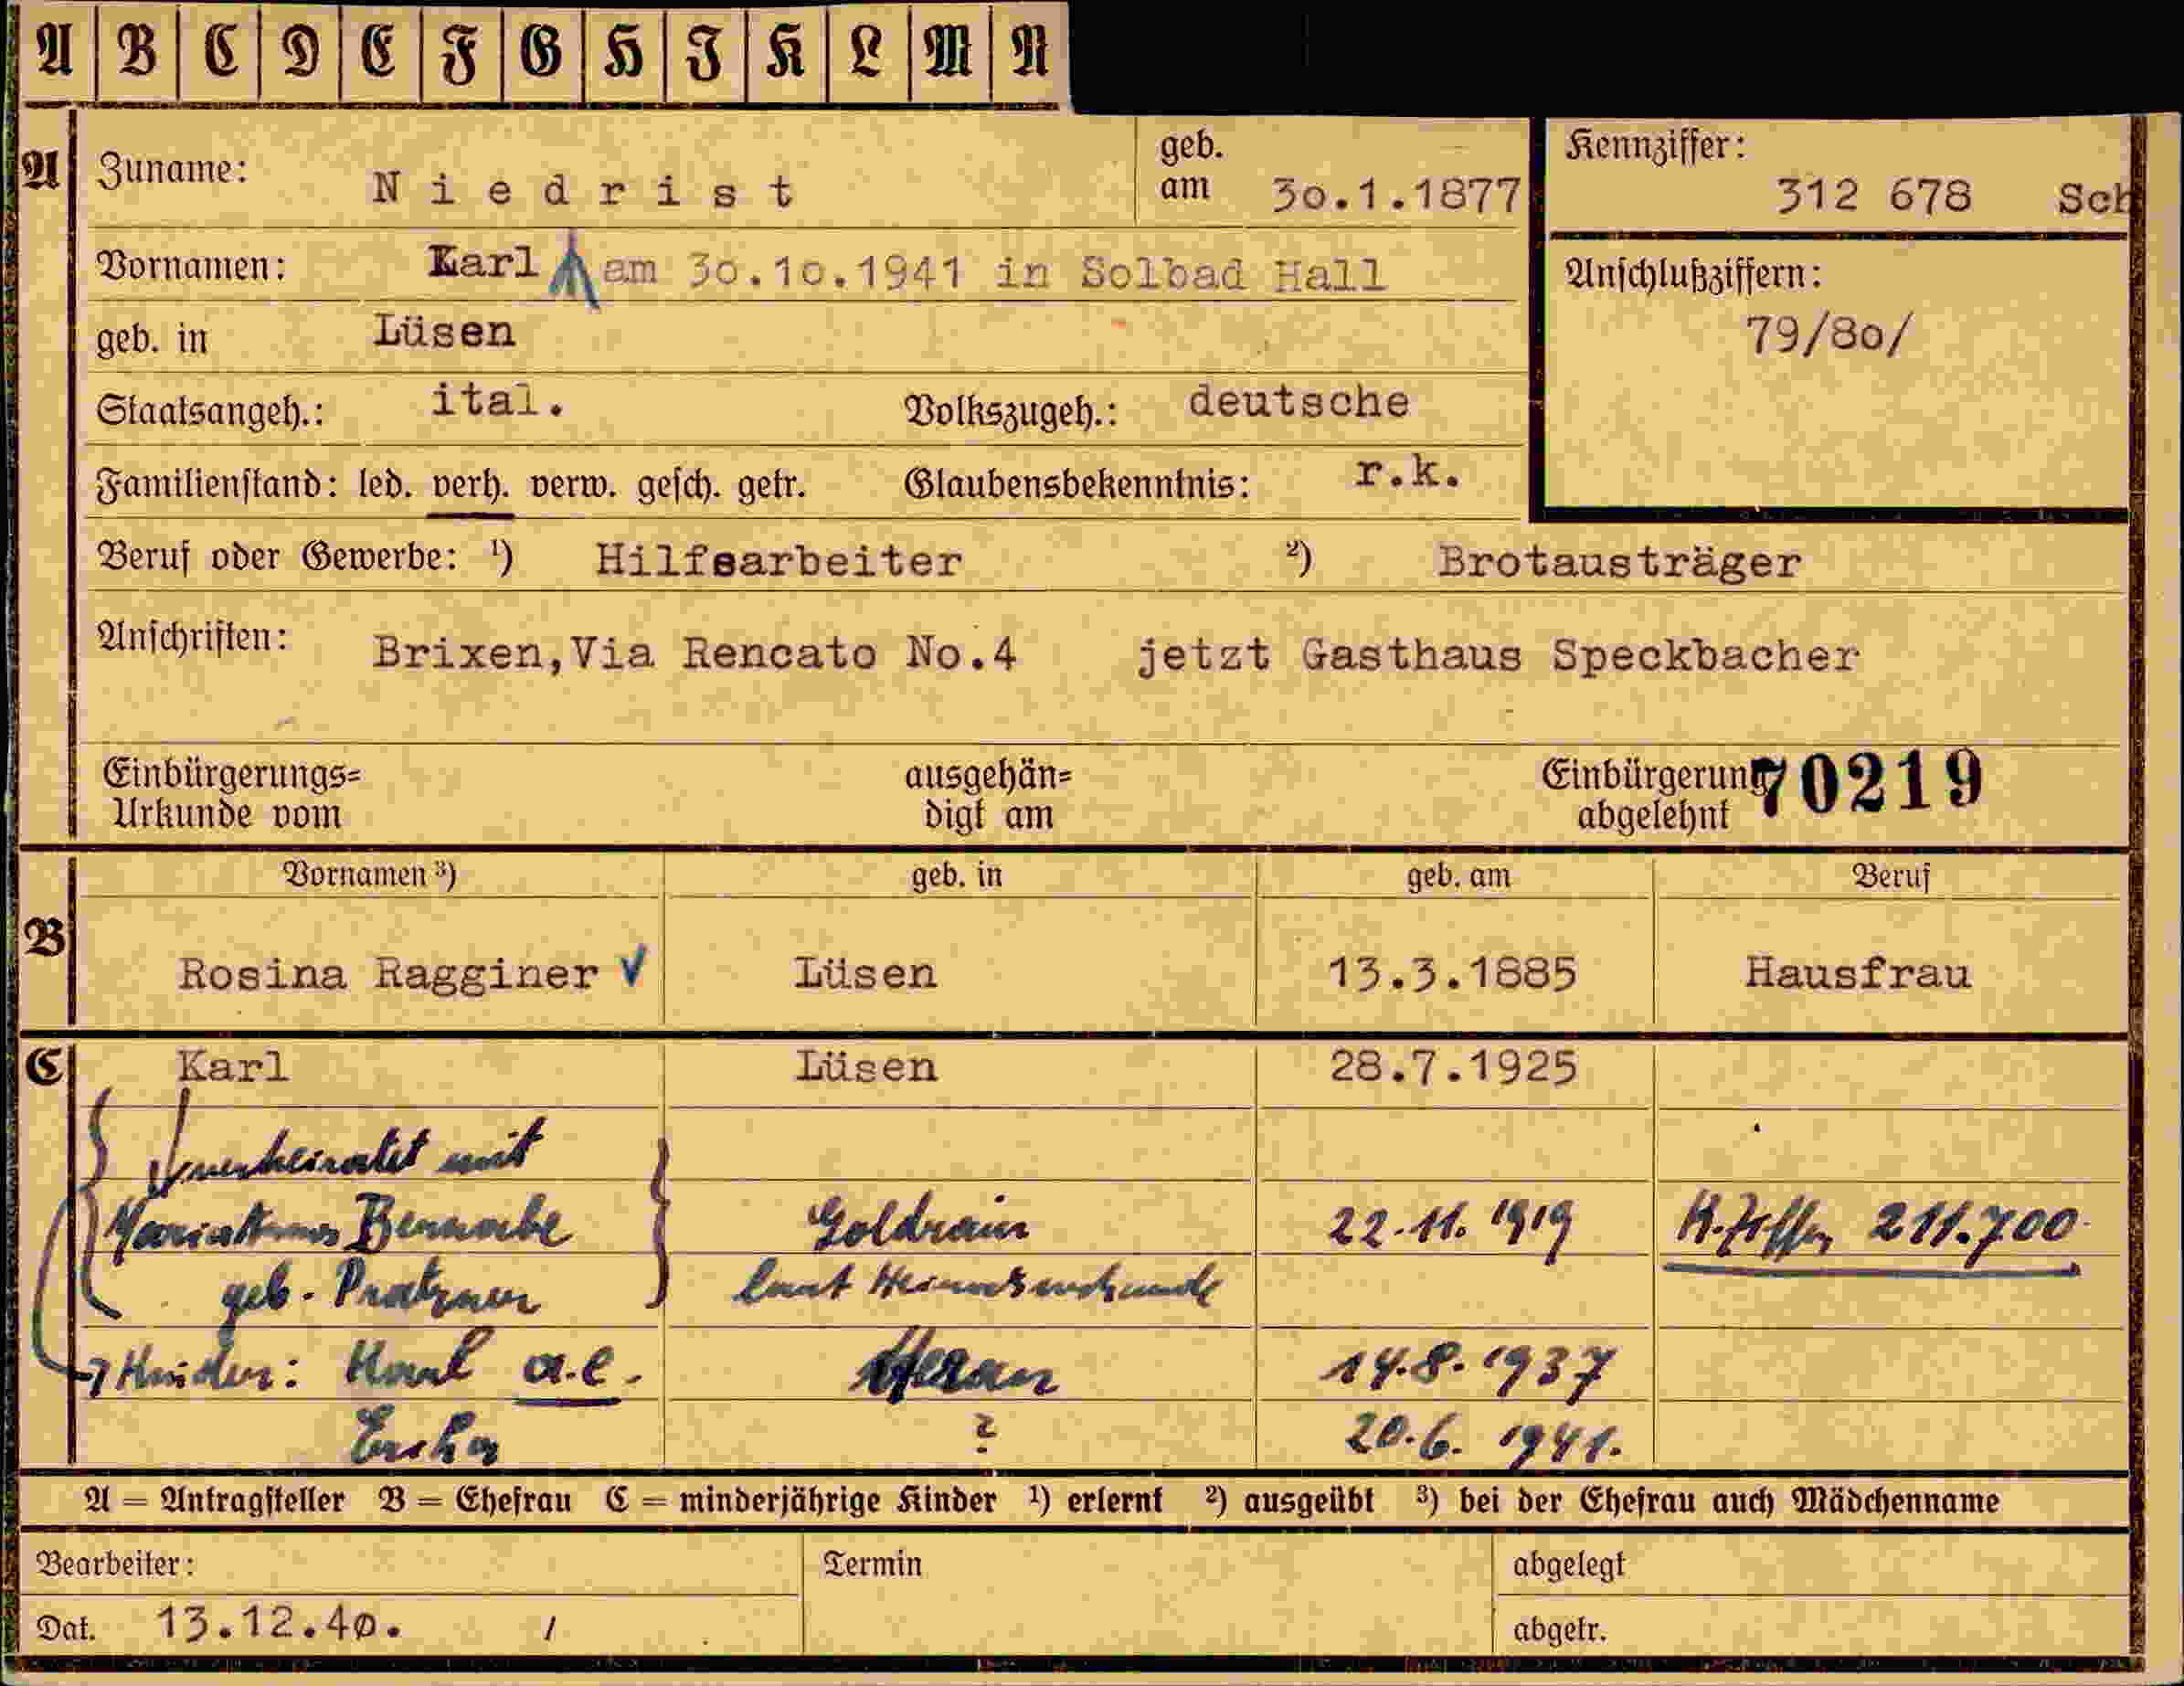 A B C D E F G H J K L M N
A Zuname: Niedrist geb. am 30.1.1877 Kennziffer: 312 678 Sch
Vornamen: Karl am 30.10.1941 in Solbad Hall Anschlußziffern:
geb. in Lüsen 79/80/
Staatsangeh.: ital. Volkszugeh.: deutsche
Familienstand: led. verh. verw. gesch. getr. Glaubensbekenntnis: r.k.
Beruf oder Gewerbe: ¹) Hilfsarbeiter ²) Brotausträger
Anschriften: Brixen,Via Rencato No.4 jetzt Gasthaus Speckbacher
Einbürgerungs= ausgehän= Einbürgerung 70219
Urkunde vom digt am abgelehnt
Vornamen ³) geb. in geb. am Beruf
B Rosina Ragginer Lüsen 13.3.1885 Hausfrau
C Karl Lüsen 28.7.1925
verheiratet mit
Goldrain 22.11.1919 K.Ziffer 211.700
geb. laut
Kinder: Karl a.e. Meran 14.8.1937
? 20.6.1941.
A = Antragsteller B = Ehefrau C = minderjährige Kinder ¹) erlernt ²) ausgeübt ³) bei der Ehefrau auch Mädchenname
Bearbeiter: Termin abgelegt
Dat. 13.12.40. / abgetr.